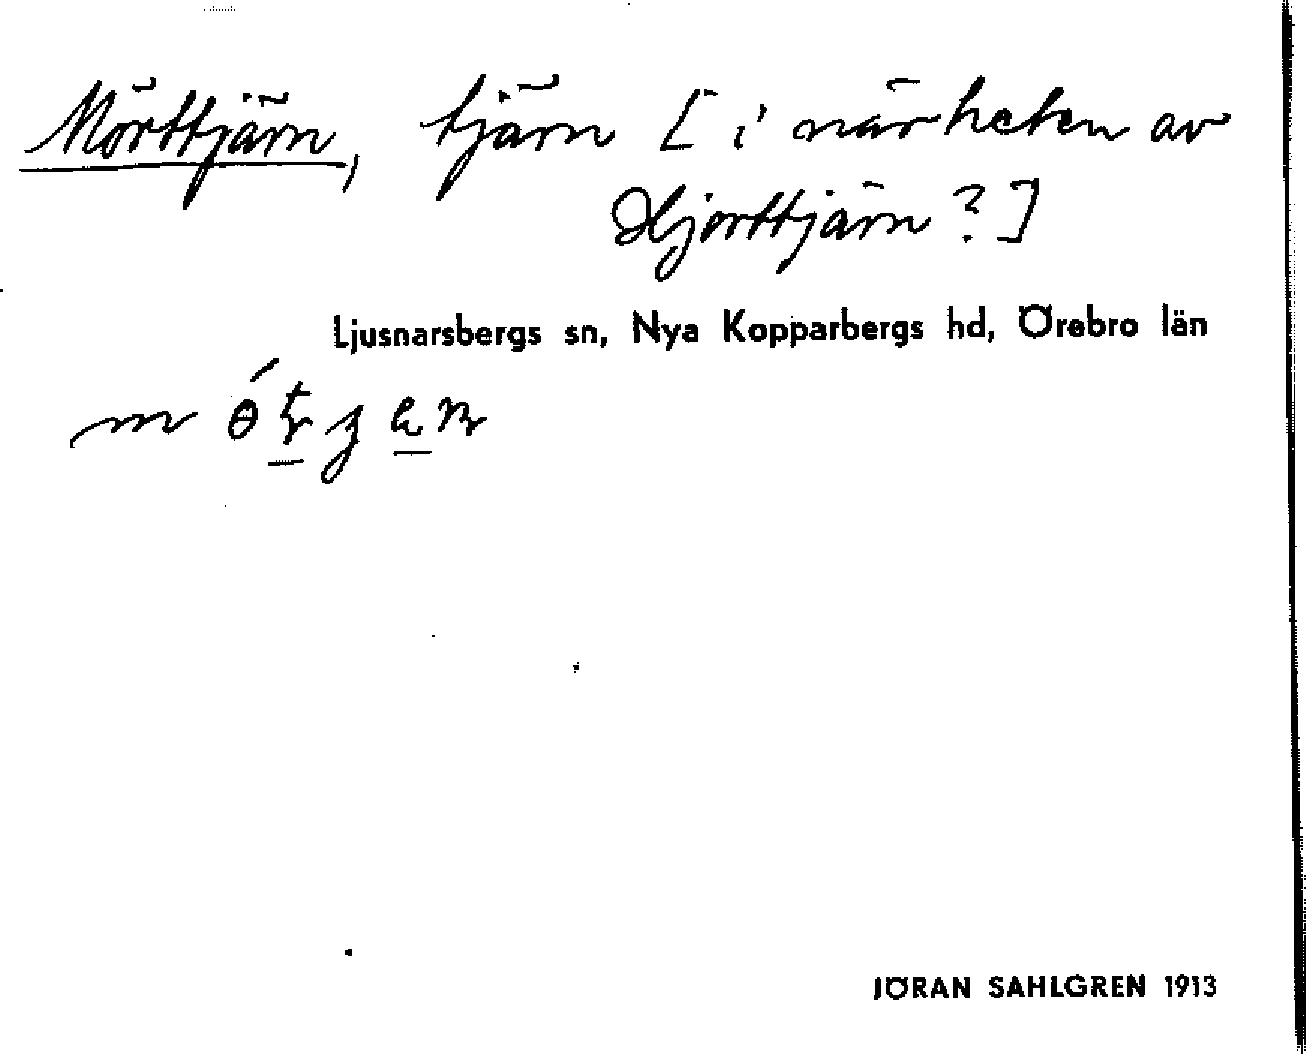 Mörttjärn, tjärn [i närheten av
Hjorttjärn?]
Ljusnarsbergs sn, Nya Kopparbergs hd, Örebro län
JÖRAN SAHLGREN 1913